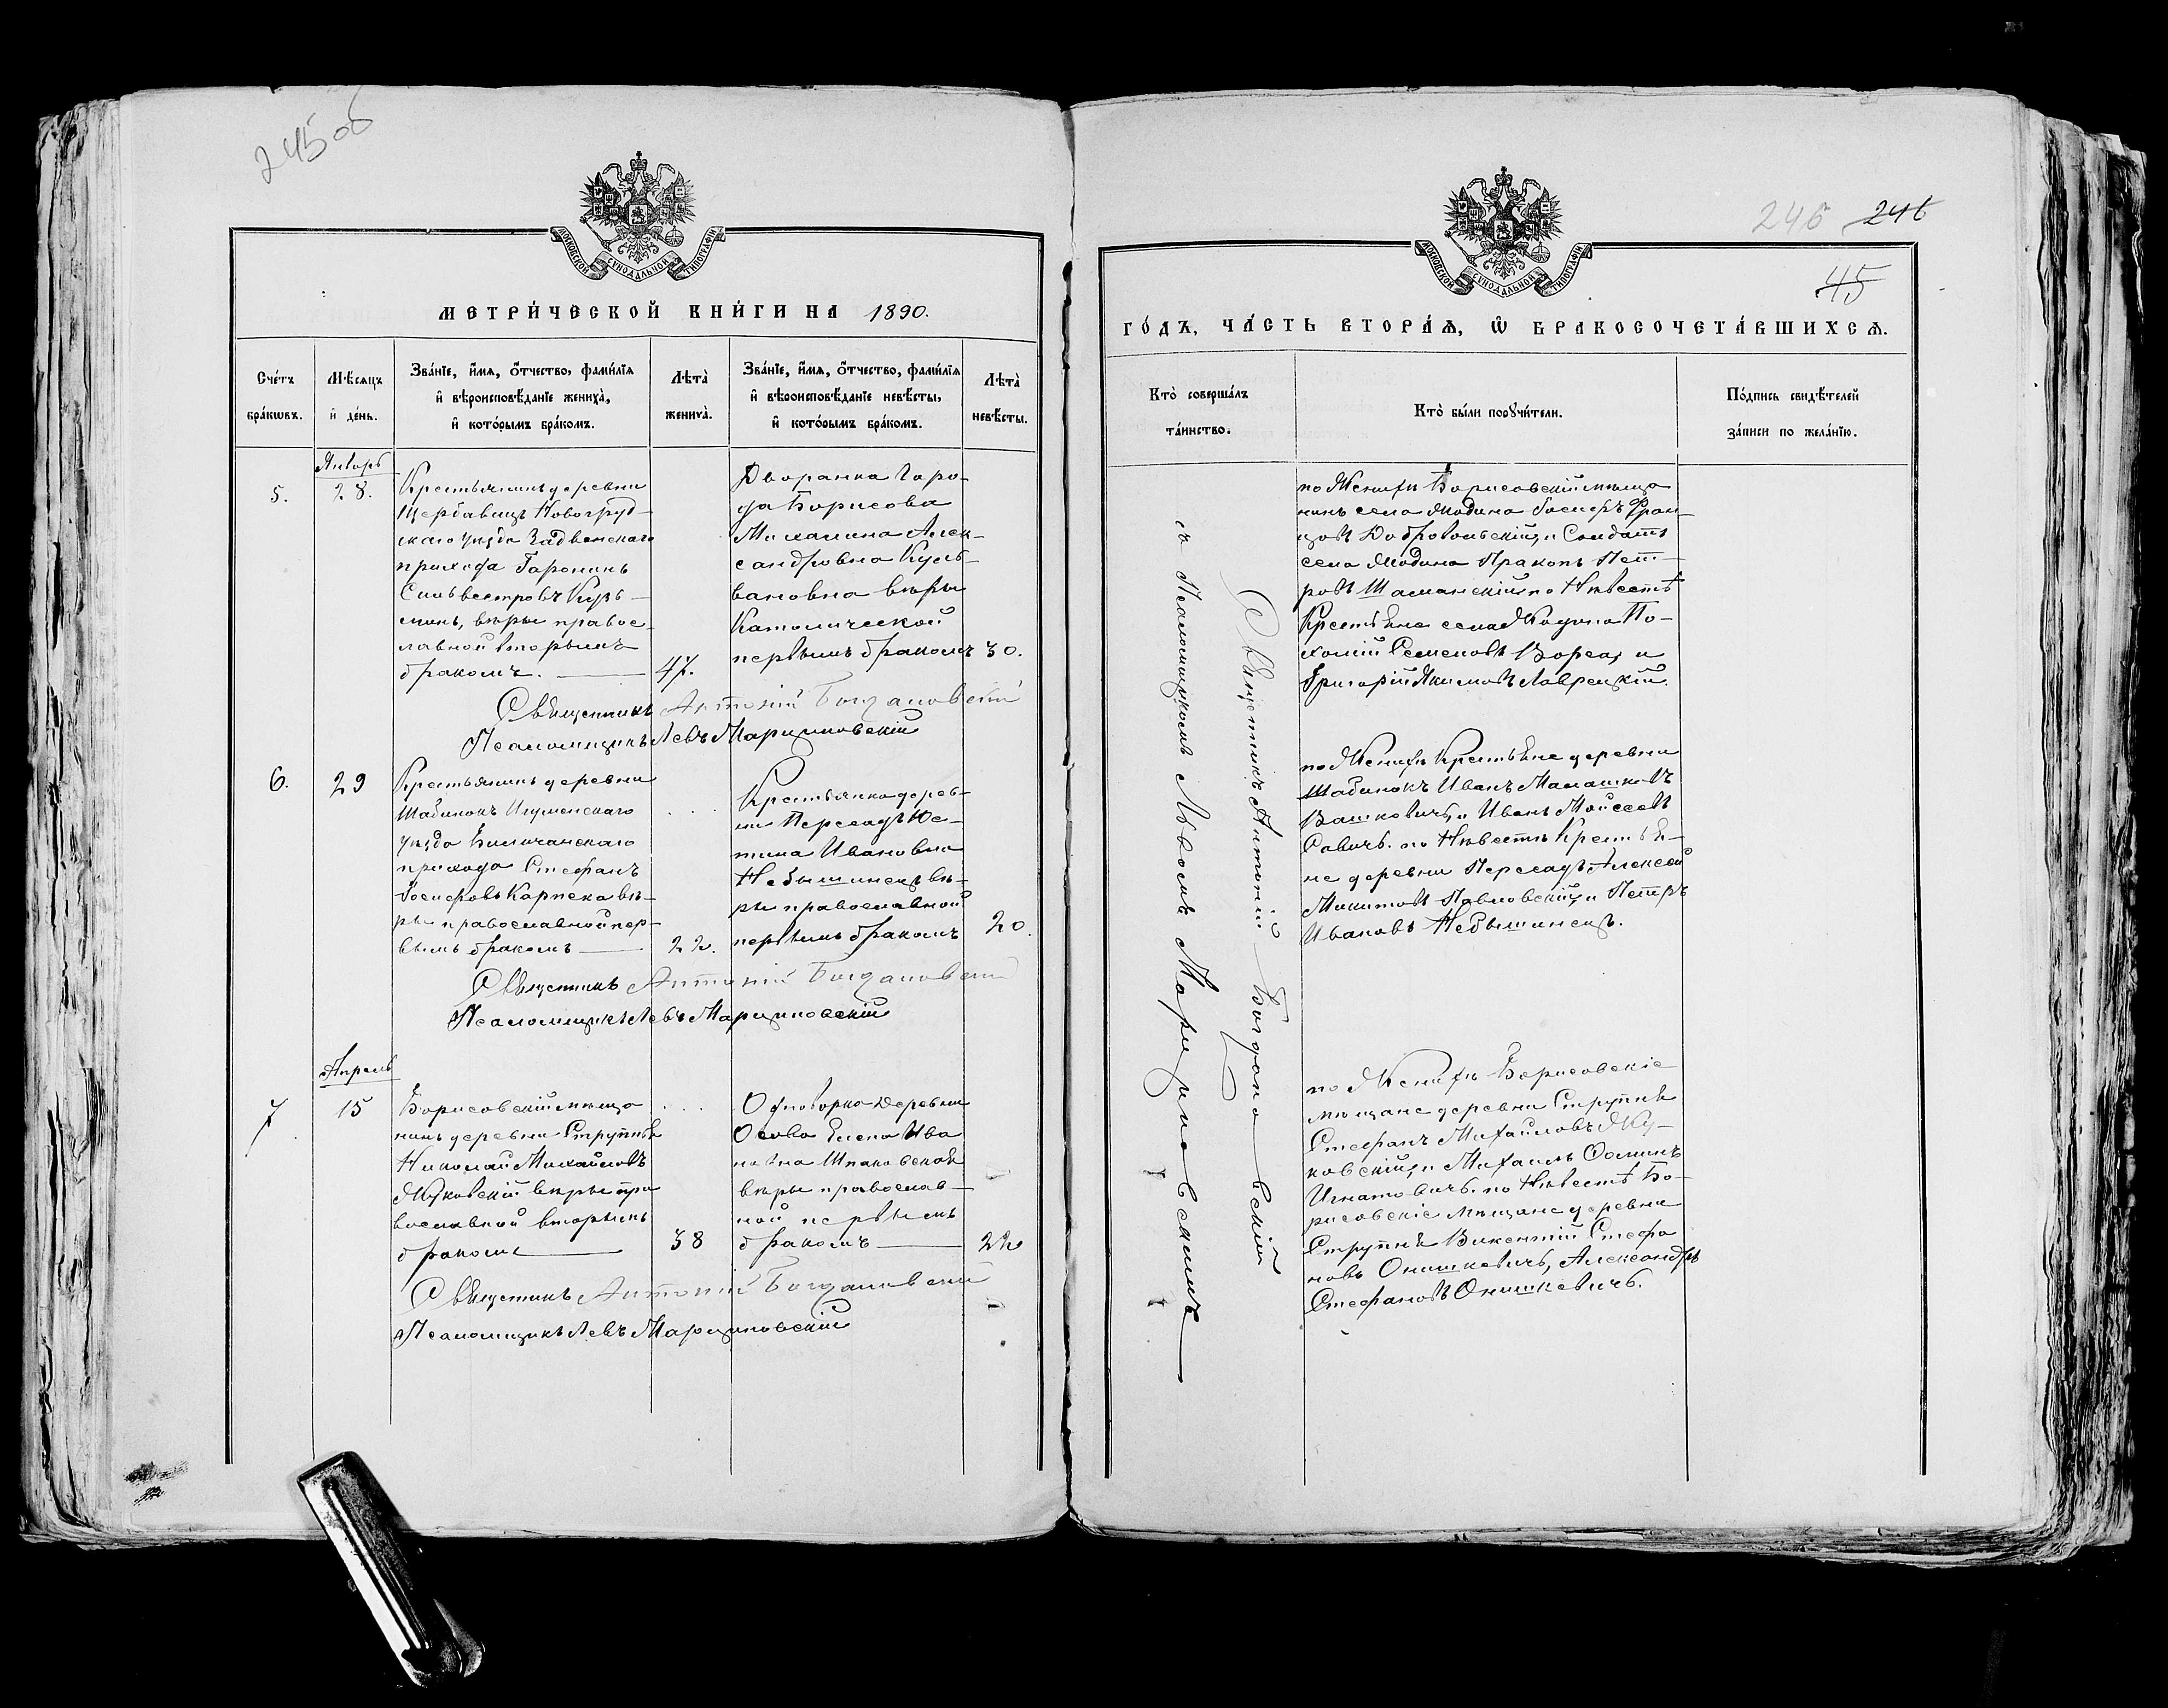 245об
МОСКОВСКОЙ СѴНОДАЛЬНОЙ ТИПОГРАФІИ
МЕТРИ́ЧЕСКОЙ КНИ́ГИ НА 1890.
Сче́тъ бра́кωвъ.
Мѣ́сяцъ и҆ де́нь.
Зва́нїе, и҆́мѧ, ѻ҆́тчество, фамилїѧ
и҆ вѣроисповѣ́данїе жениха̀,
и҆ кото́рымъ бра́комъ.
Лѣта̀ жениха̀.
Зва́нїе, и҆́мѧ, ѻ҆́тчество, фамилїѧ
и҆ вѣроисповѣ́данїе невѣ́сты,
и҆ кото́рымъ бра́комъ.
Лѣта̀ невѣ́сты.
5.
Январь
28.
Крестьянинъ деревни
Щербавицъ Новогруд-
скаго уѣзда
прихода
Сильвестровъ Кузь-
минъ, вѣры правос-
лавной вторымъ
бракомъ.
47.
Дворянка горо-
да Борисова
Алек-
сандровна Куль-
вановна вѣры
Католической
первымъ бракомъ
30.
Священникъ Антоній Богдановскій
Псаломщикъ Левъ Марциновскій
6.
29
Крестьянинъ деревни
Шабинокъ Игуменскаго
уѣзда
прихода Стефанъ
Іосифовъ Карпека вѣ-
ры православной пер-
вымъ бракомъ
22.
Крестьянка дерев-
ни Пересадъ Юс-
тина Ивановна
Небышинецъ вѣ-
ры православной
первымъ бракомъ
20.
Священникъ Антоній Богдановскій
Псаломщикъ Левъ Марциновскій
Апрель
7
15
Борисовскій мѣща
нинъ деревни Струпнѣ
Николай Михайловъ
Жуковскій вѣры пра
вославной вторымъ
бракомъ
38
Однодворка Деревни
Осова Елена Ива
новна Шпаковская
вѣры православ-
ной первымъ
бракомъ
22
Священникъ Антоній Богдановскій
Псаломщикъ Левъ Марциновскій
246 246
45
МОСКОВСКОЙ СѴНОДАЛЬНОЙ ТИПОГРАФІИ
ГО́ДЪ, ЧА́СТЬ ВТОРА́Ѧ, Ѡ҆ БРАКОСОЧЕТА́ВШИХСѦ.
Кто̀ соверша́лъ
та́инство.
Кто̀ бы́ли порꙋчи́тели.
По́дпись свидѣ́телей
за́писи по жела́нїю.
Священникъ Антоній Богдановскій
съ Псаломщикомъ Львомъ Марциновскимъ
по Женихѣ Борисовскій мѣща
нинъ села Жодина Іосифъ Фран-
цовъ Добровольскій, и Солдатъ
села Жодина Пракопъ Пет-
ровъ Шаманскій, по Невѣстѣ
Крестьяне села Жодина Па-
хомій Семеновъ Ворса, и
Григорій Якимовъ Лаврецкій.
по Женихѣ Крестьяне деревни
Шабинокъ Иванъ Малашковъ
Вашкевичъ, и Иванъ Мойсеевъ
Савичъ. по Невѣстѣ Крестья-
не деревни Пересадъ Алексей
Микитовъ Павловскій, и Петръ
Ивановъ Небышинецъ.
по Женихѣ Борисовскіе
мѣщане деревни Струпнѣ
Стефанъ Михайловъ Жу-
ковскій, и Михаилъ Фоминъ
Игнатовичъ. по Невѣстѣ Бо-
рисовскіе мѣщане деревни
Струпнѣ Викентій Стефа
новъ Онишкевичъ, Александръ
Стефановъ Онишкевичъ.